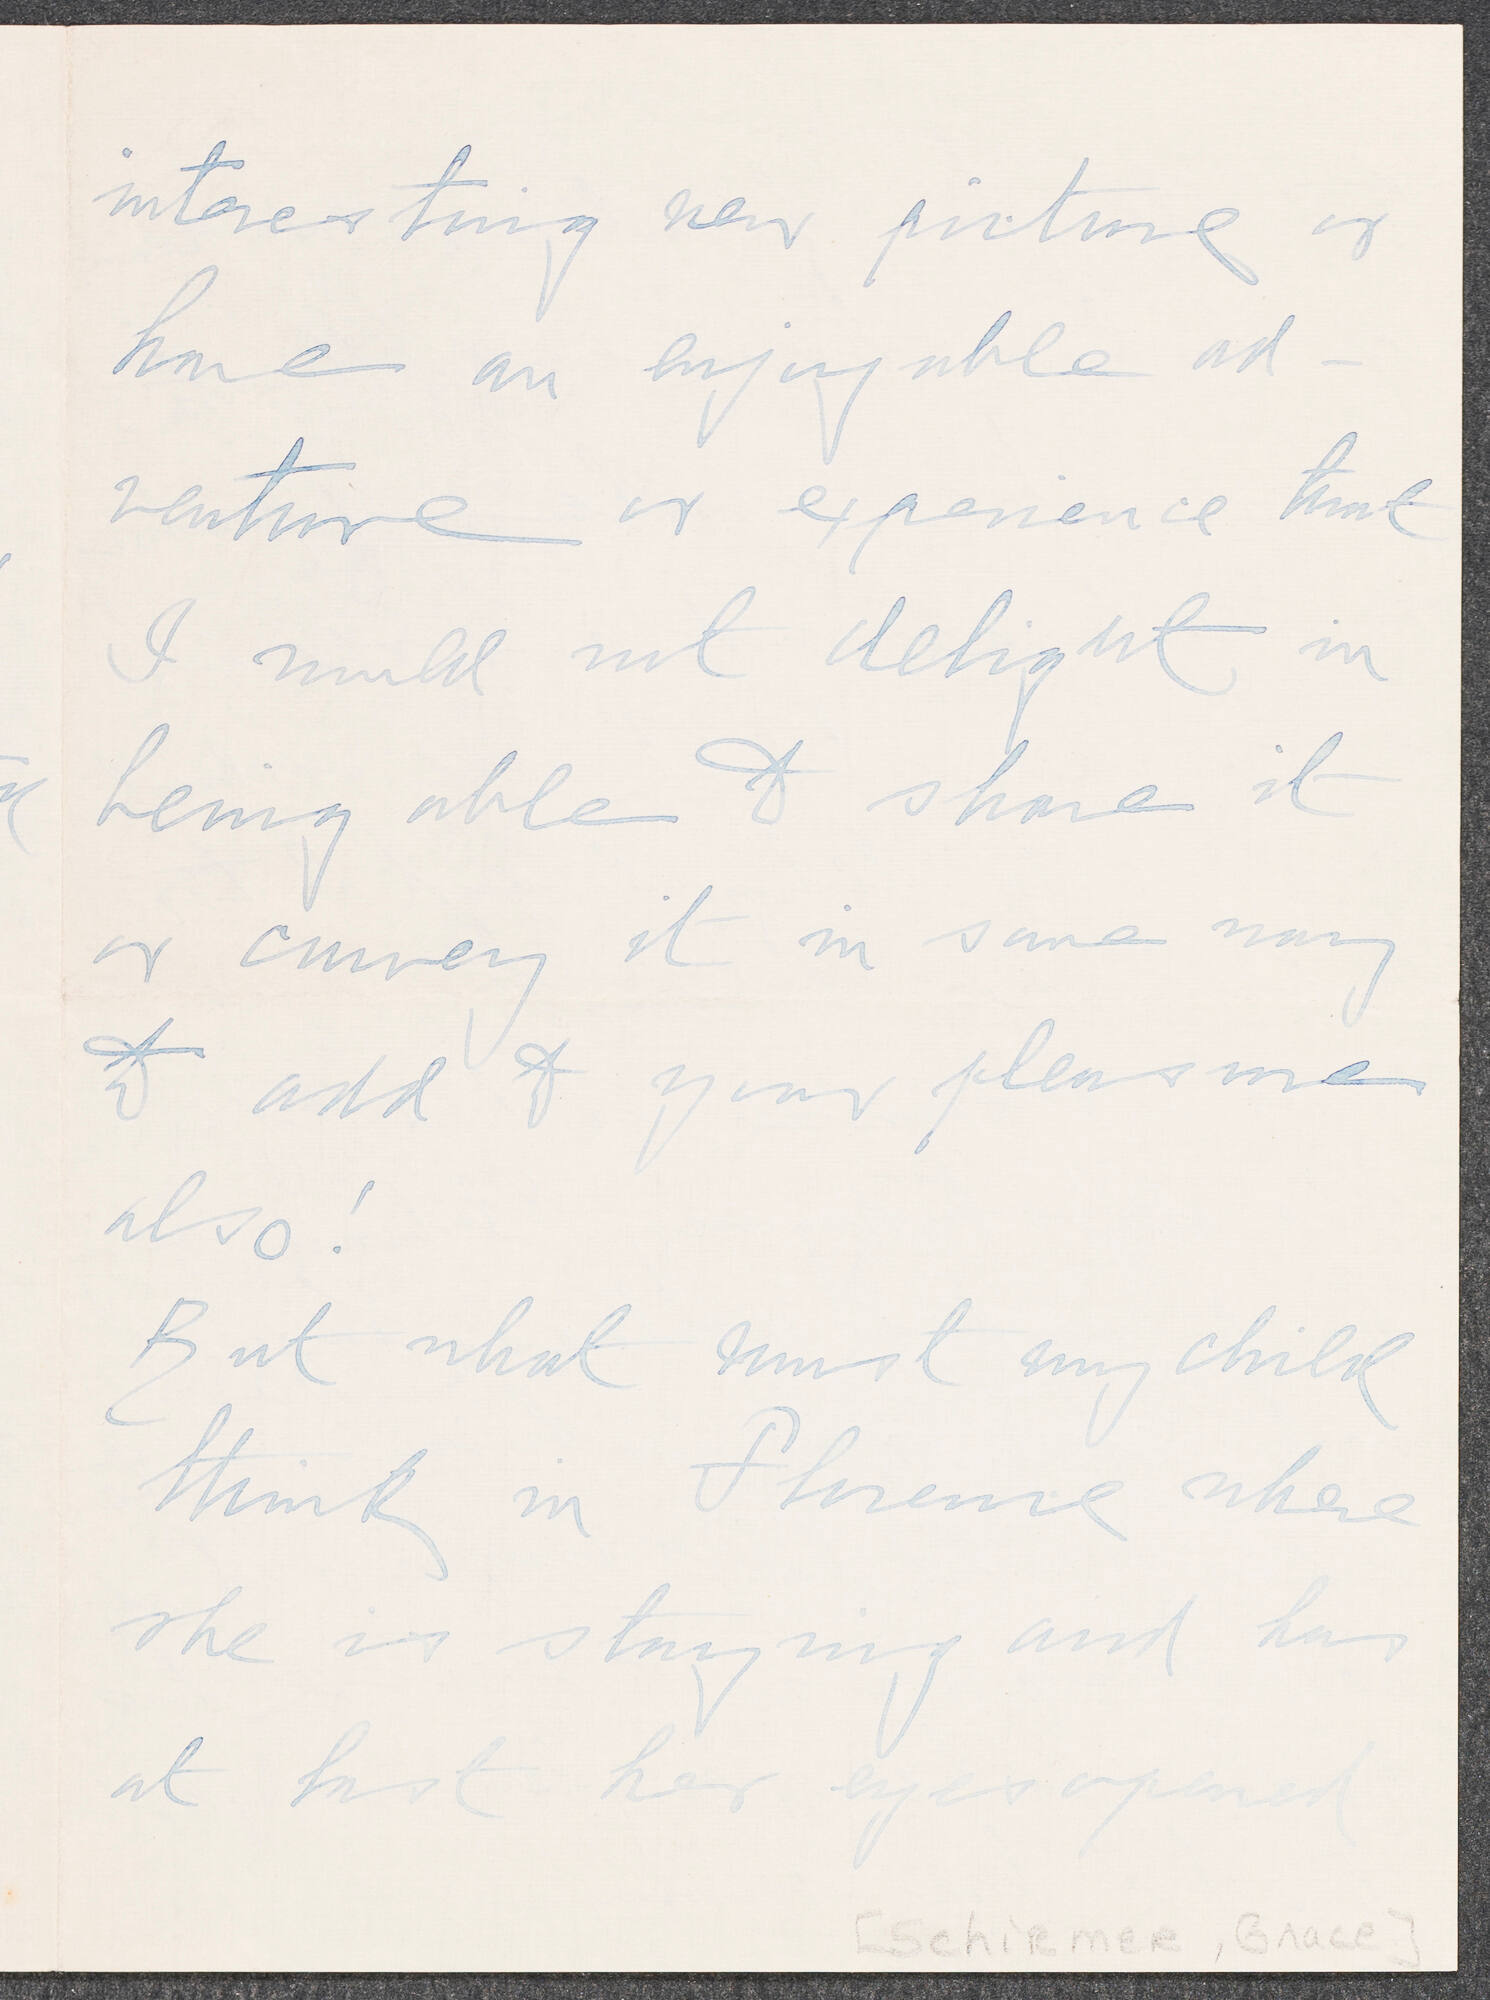 interesting new picture or
have an enjoyable ad-
venture or experience that
I would not delight in
being able to share it
or convey it in some way
to add to your pleasure
also!
But what must my child
think in Florence where
she is staying and has
at last her eyes opened
[Schirmer, Grace]